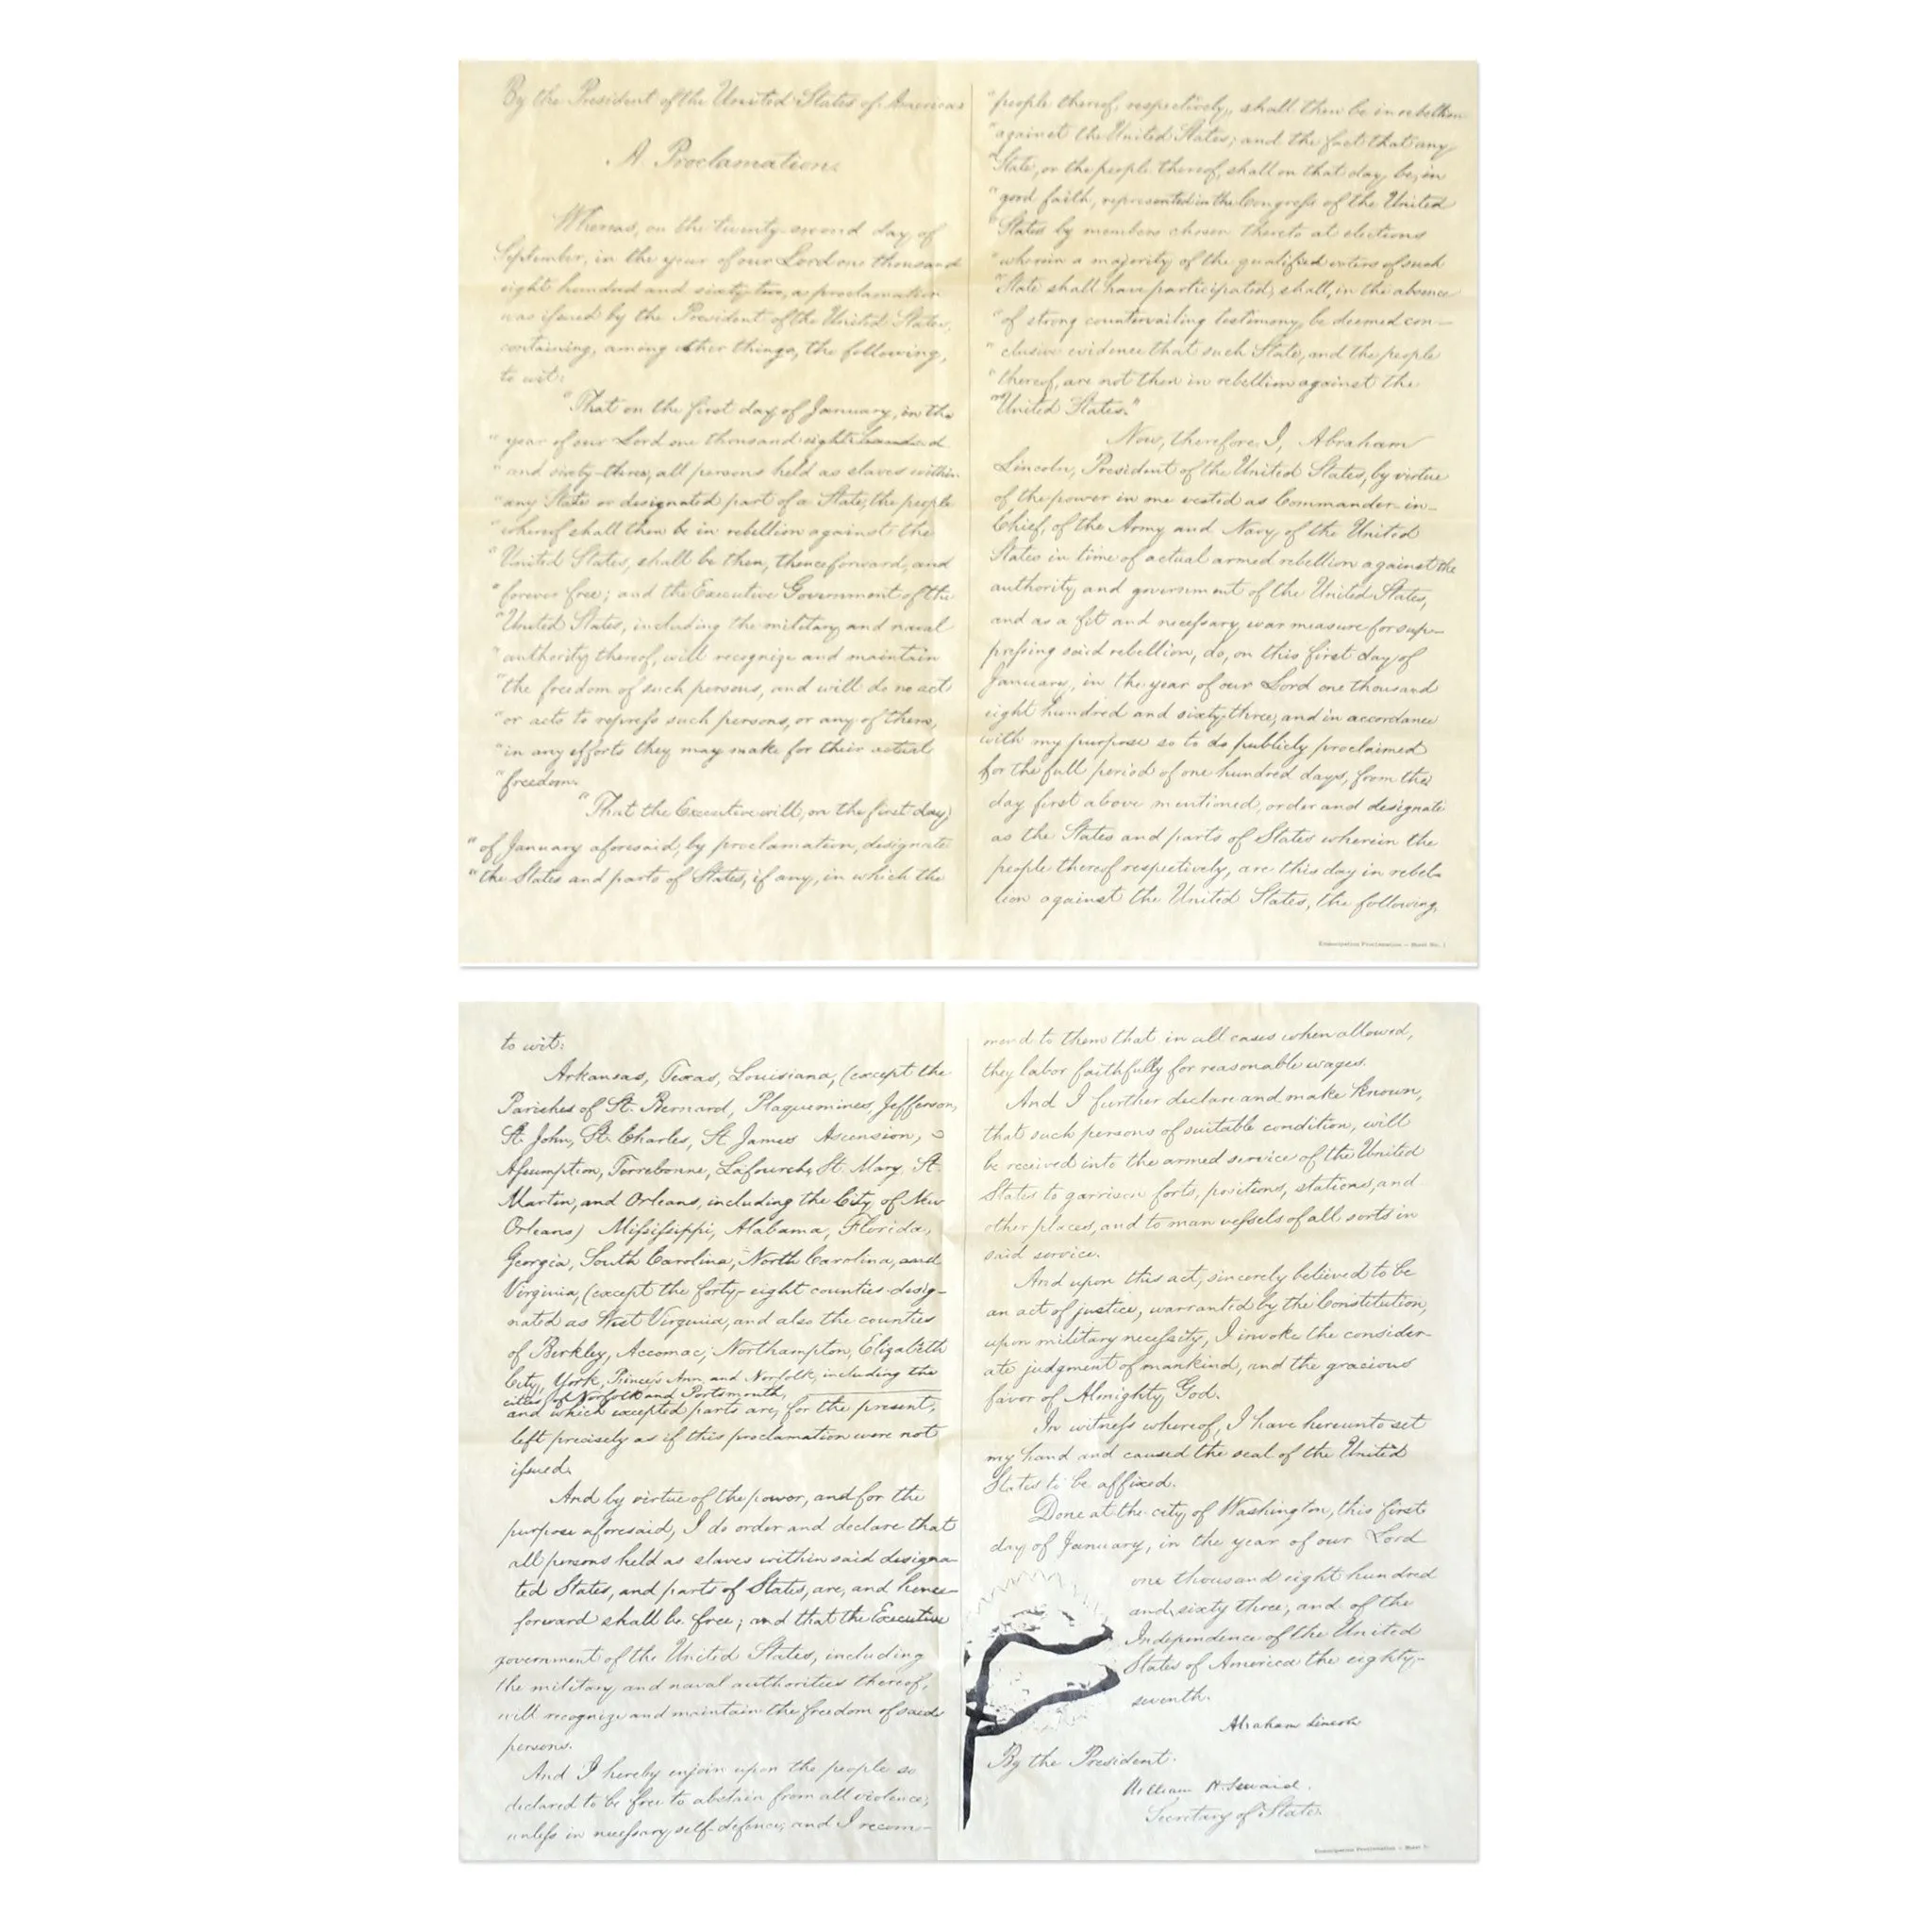 By the President of the United States of America:
A Proclamation.
Whereas, on the twenty-second day of
September, in the year of our Lord one thousand
eight hundred and sixty-two, a proclamation
was issued by the President of the United States,
containing, among other things, the following,
to wit:
"That on the first day of January, in the
"year of our Lord one thousand eight hundred
"and sixty-three, all persons held as slaves within
"any State or designated part of a State, the people
"whereof shall then be in rebellion against the
"United States, shall be then, thenceforward, and
"forever free; and the Executive Government of the
"United States, including the military and naval
"authority thereof, will recognize and maintain
"the freedom of such persons, and will do no act
"or acts to repress such persons, or any of them,
"in any efforts they may make for their actual
"freedom.
"That the Executive will, on the first day
"of January aforesaid, by proclamation, designate
"the States and parts of States, if any, in which the
"people thereof, respectively, shall then be in rebellion
"against the United States; and the fact that any
"State, or the people thereof, shall on that day be, in
"good faith, represented in the Congress of the United
"States by members chosen thereto at elections
"wherein a majority of the qualified voters of such
"State shall have participated, shall, in the absence
"of strong countervailing testimony, be deemed con-
"clusive evidence that such State, and the people
"thereof, are not then in rebellion against the
"United States."
Now, therefore I, Abraham
Lincoln, President of the United States, by virtue
of the power in me vested as Commander-in-
Chief, of the Army and Navy of the United
States in time of actual armed rebellion against the
authority and government of the United States,
and as a fit and necessary war measure for sup-
pressing said rebellion, do, on this first day of
January, in the year of our Lord one thousand
eight hundred and sixty three, and in accordance
with my purpose so to do publicly proclaimed
for the full period of one hundred days, from the
day first above mentioned, order and designate
as the States and parts of States wherein the
people thereof respectively, are this day in rebel-
lion against the United States, the following,
Emancipation Proclamation — Sheet No. 1
to wit:
Arkansas, Texas, Louisiana, (except the
Parishes of St. Bernard, Plaquemines, Jefferson,
St. John, St. Charles, St. James Ascension,
Assumption, Terrebonne, Lafourche, St. Mary, St.
Martin, and Orleans, including the City of New
Orleans) Mississippi, Alabama, Florida,
Georgia, South Carolina, North Carolina, and
Virginia, (except the forty-eight counties desig-
nated as West Virginia, and also the counties
of Berkley, Accomac, Northampton, Elizabeth
City, York, Princess Ann, and Norfolk, including the
cities of Norfolk and Portsmouth,
and which excepted parts are, for the present,
left precisely as if this proclamation were not
issued.
And by virtue of the power, and for the
purpose aforesaid, I do order and declare that
all persons held as slaves within said designa-
ted States, and parts of States, are, and hence-
forward shall be free; and that the Executive
government of the United States, including
the military and naval authorities thereof,
will recognize and maintain the freedom of said
persons.
And I hereby enjoin upon the people so
declared to be free to abstain from all violence,
unless in necessary self-defence; and I recom-
mend to them that in all cases when allowed,
they labor faithfully for reasonable wages.
And I further declare and make known,
that such persons of suitable condition, will
be received into the armed service of the United
States to garrison forts, positions, stations, and
other places, and to man vessels of all sorts in
said service.
And upon this act, sincerely believed to be
an act of justice, warranted by the Constitution,
upon military necessity, I invoke the consider-
ate judgment of mankind, and the gracious
favor of Almighty God.
In witness whereof, I have hereunto set
my hand and caused the seal of the United
States to be affixed.
Done at the city of Washington, this first
day of January, in the year of our Lord
one thousand eight hundred
and sixty three, and of the
Independence of the United
States of America the eighty-
seventh.
Abraham Lincoln
By the President:
William H. Seward.
Secretary of State.
Emancipation Proclamation — Sheet